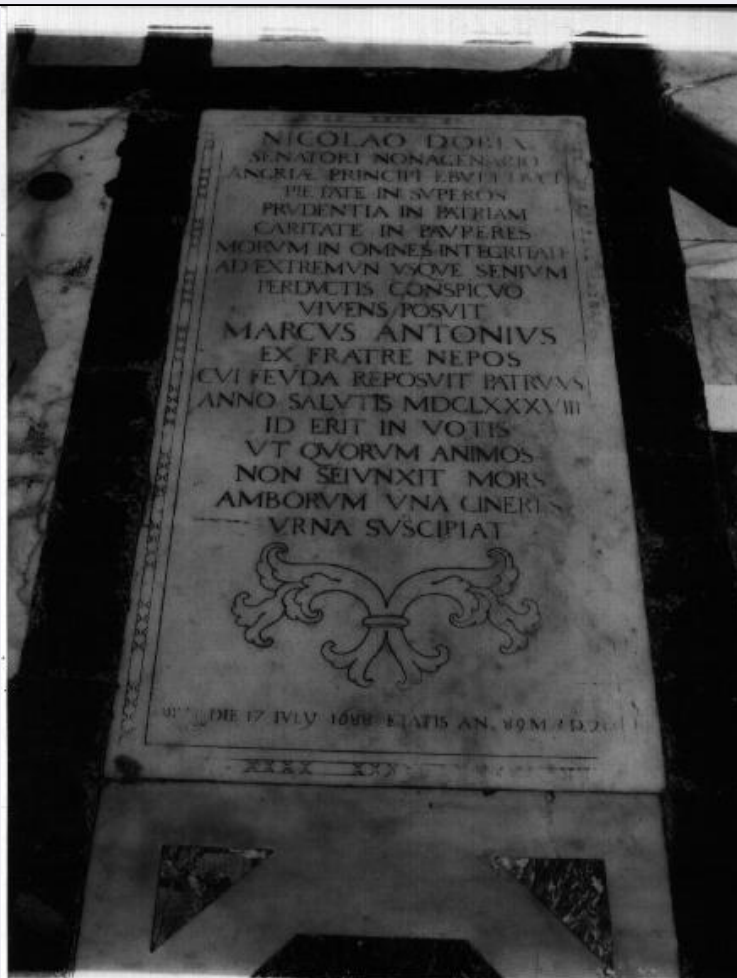 NICOLAO DORIA
SENATORI NONAGENARIO
ANGRIÆ PRINCIPI EBVLI DVCI
PIETATE IN SVPEROS
PRVDENTIA IN PATRIAM
CARITATE IN PAVPERES
MORVM IN OMNES INTEGRITATE
AD EXTREMVN VSQVE SENIVM
PERDVCTIS CONSPICVO
VIVENS POSVIT
MARCVS ANTONIVS
EX FRATRE NEPOS
CVI FEVDA REPOSVIT PATRVVS
ANNO SALVTIS MDCLXXXVIII
ID ERIT IN VOTIS
VT QVORVM ANIMOS
NON SEIVNXIT MORS
AMBORVM VNA CINERES
VRNA SVSCIPIAT
DIE 17 IVLY 1688 ETATIS AN. 89 M